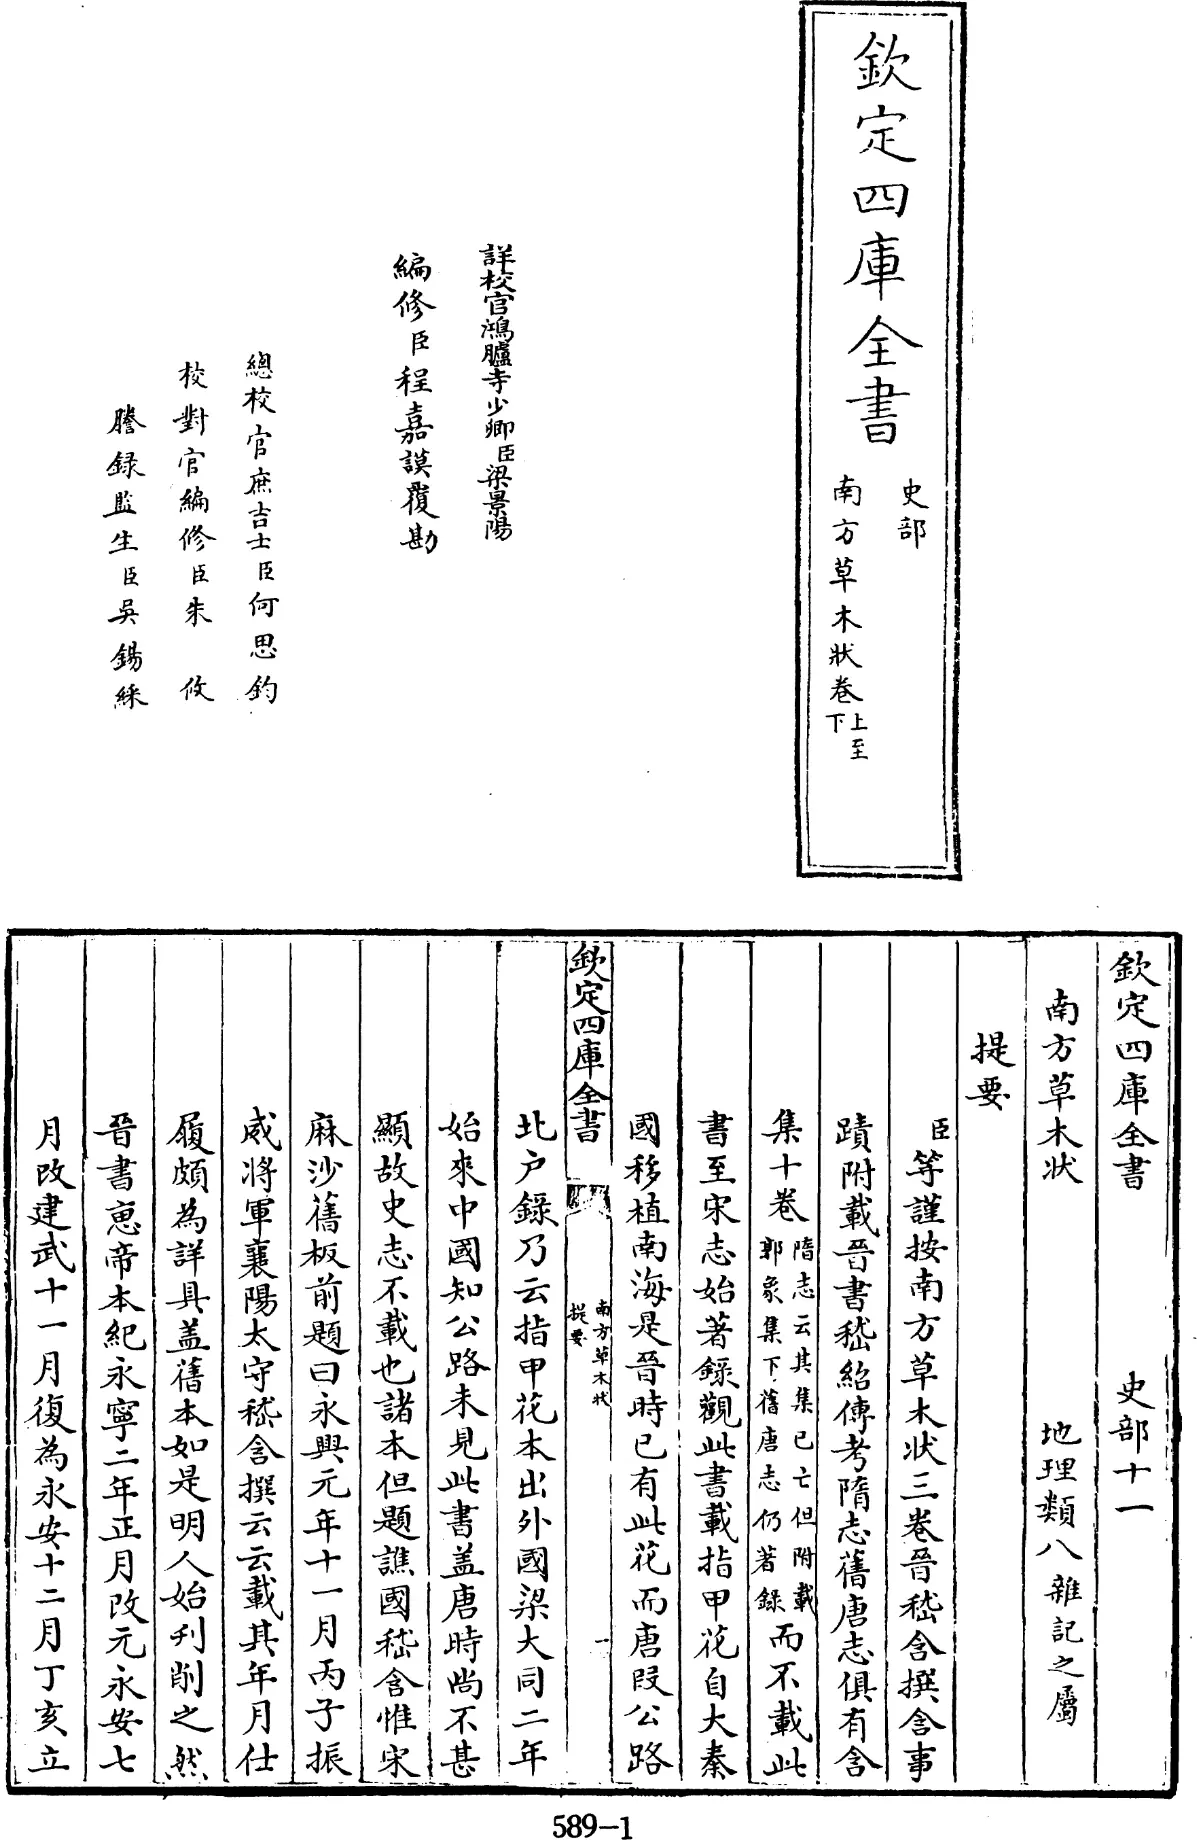 欽定四庫全書
史部
南方草木狀卷上至下
詳校官鴻臚寺少卿臣梁景陽
編修臣程嘉謨覆勘
總校官庶吉士臣何思鈞
校對官編修臣朱攸
謄錄監生臣吳錫綵
欽定四庫全書 史部十一
南方草木狀 地理類八雜記之屬
提要
臣等謹按南方草木狀三卷晉嵇含撰含事
蹟附載晉書嵇紹傳考隋志舊唐志俱有含
集十卷隋志云其集已亡但附載郭象集下舊唐志仍著錄而不載此
書至宋志始著錄觀此書載指甲花自大秦
國移植南海是晉時已有此花而唐段公路
欽定四庫全書
南方草木狀
提要
一
北戶錄乃云指甲花本出外國梁大同二年
始來中國知公路未見此書蓋唐時尚不甚
顯故史志不載也諸本但題譙國嵇含惟宋
麻沙舊板前題曰永興元年十一月丙子振
威將軍襄陽太守嵇含撰云云載其年月仕
履頗為詳具蓋舊本如是明人始刋削之然
晉書惠帝本紀永寧二年正月改元永安七
月改建武十一月復為永安十二月丁亥立
589-1